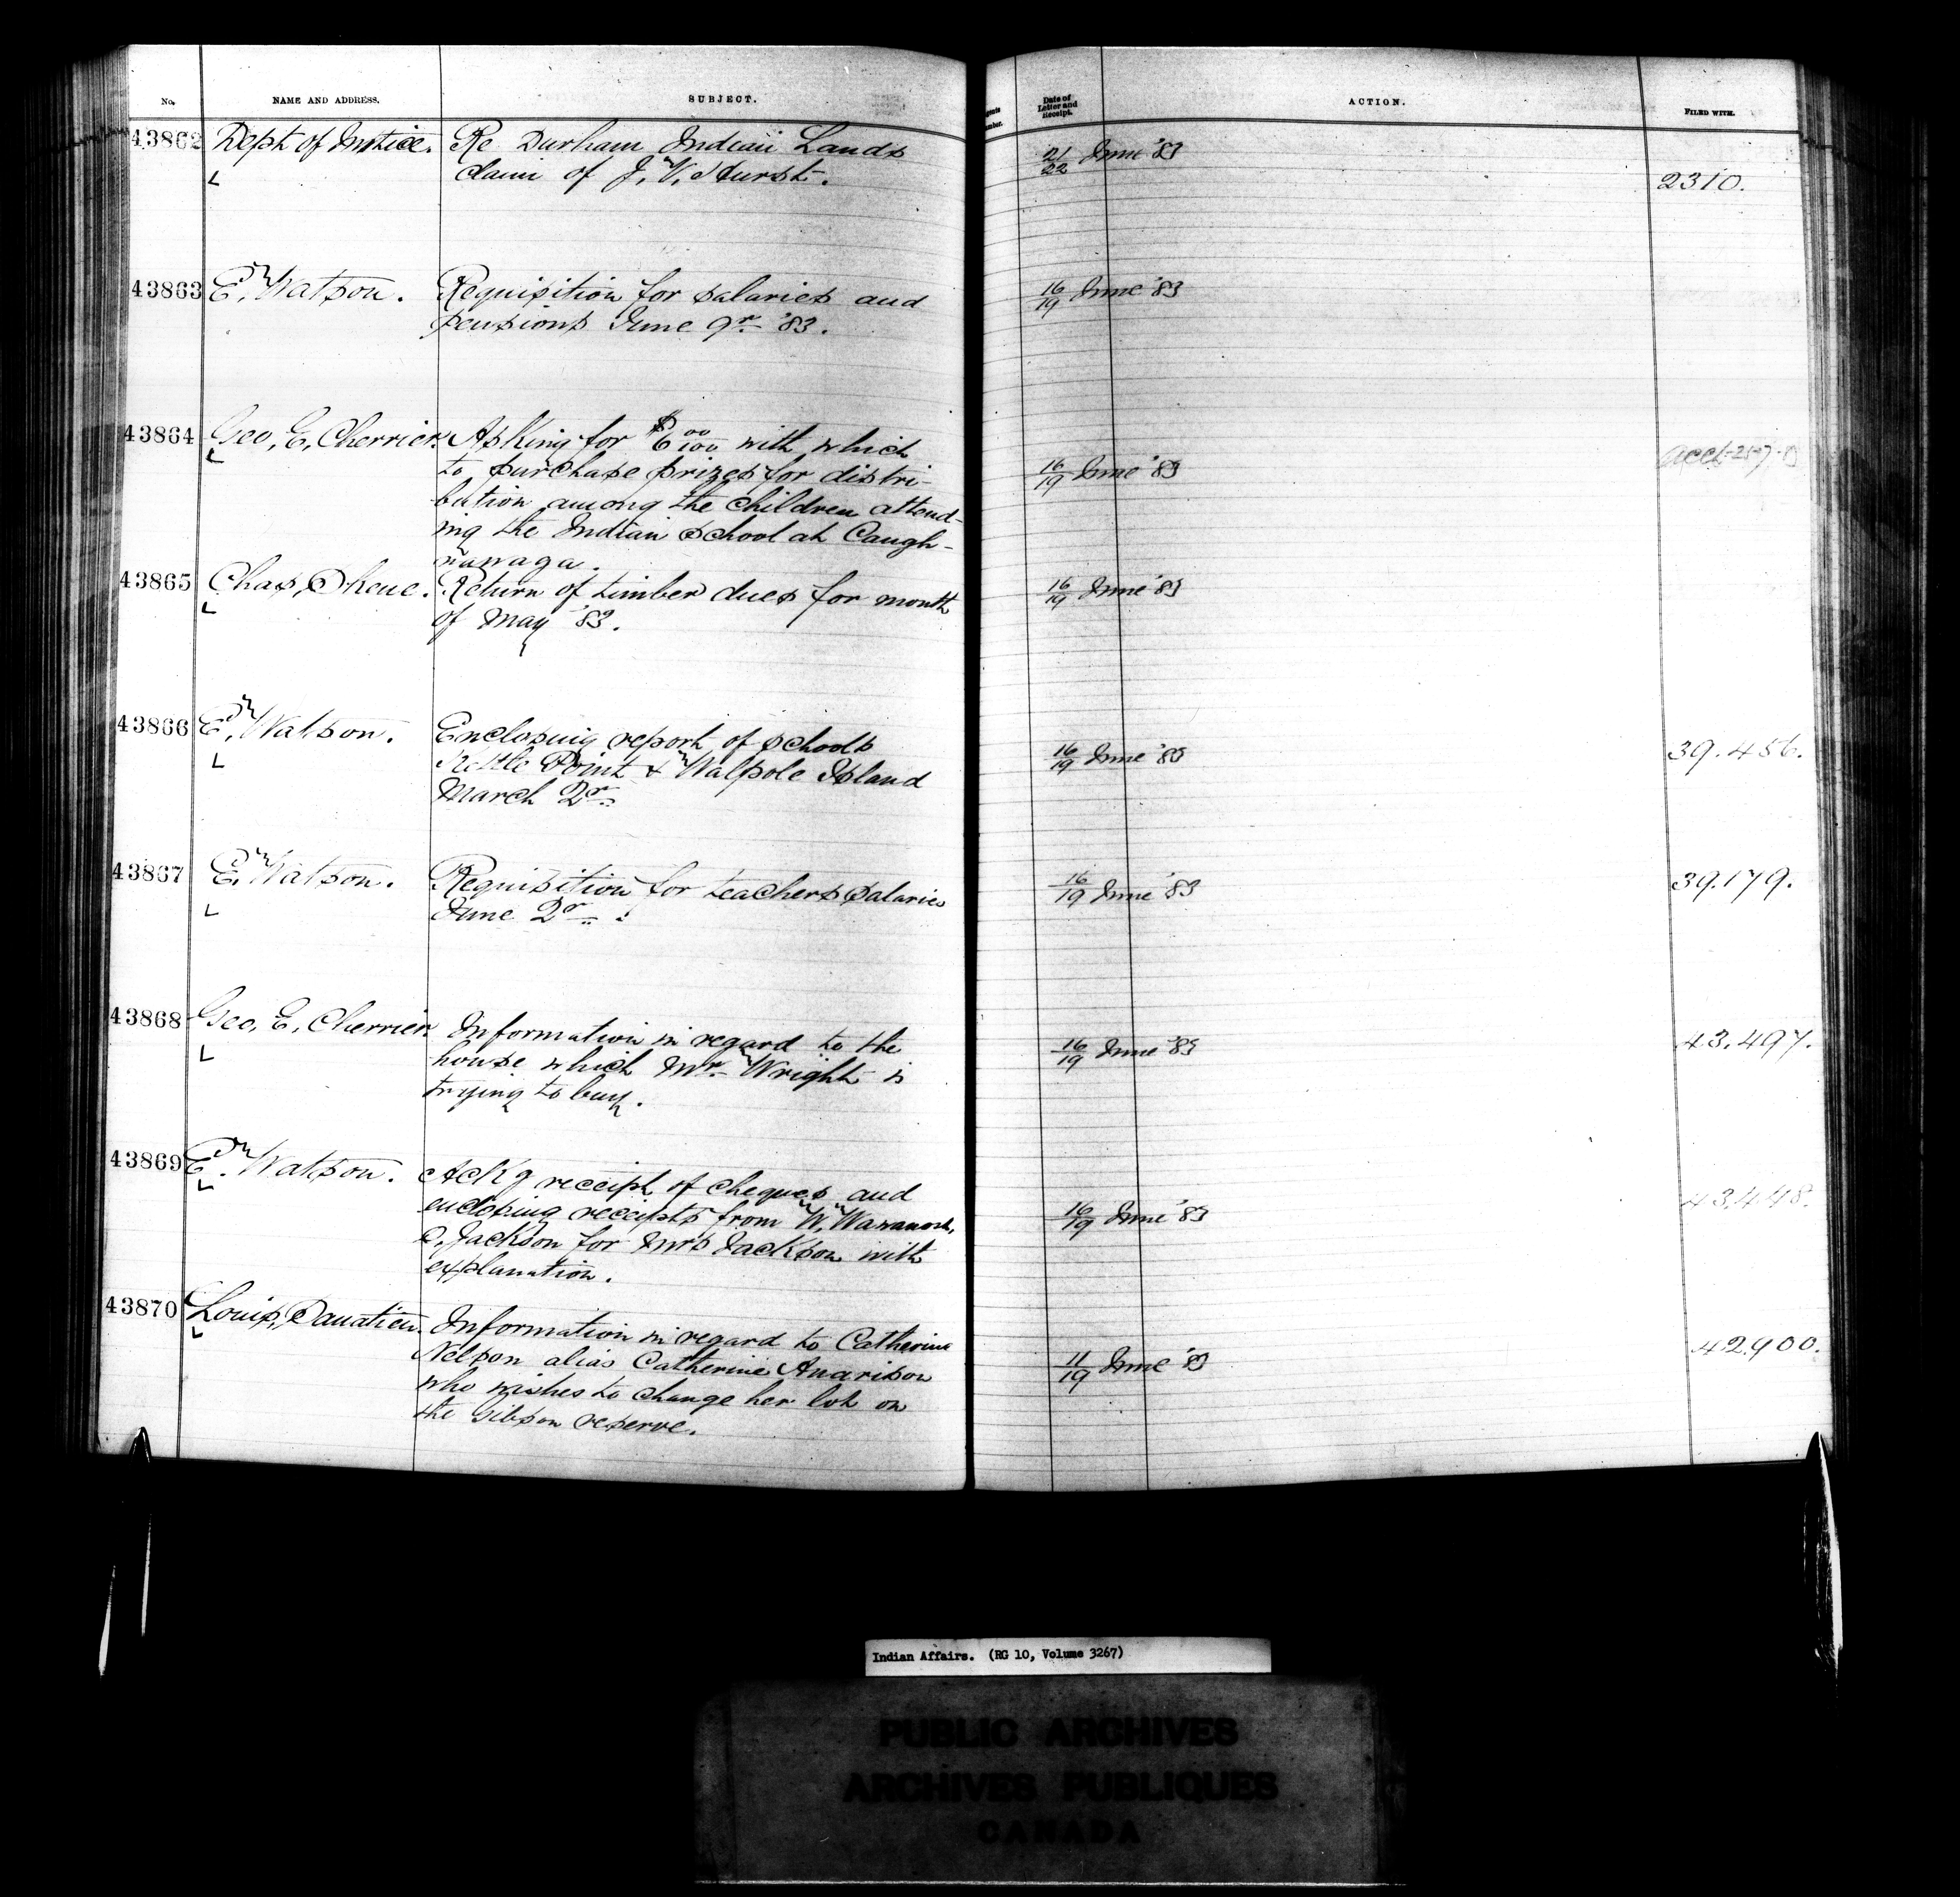 No.
NAME AND ADDRESS.
SUBJECT.
Date of Letter and Receipt.
ACTION.
FILED WITH.
43862
Dept of Justice.
Re Durham Indian Lands
claim of J. W. Hurst.
21/22 June '83
2310.
43863
E. Watson.
Requisition for salaries and
pensions June qr '83.
16/19 June '83
43864
Geo. E. Cherrier
Asking for $6 00/100 with which
to purchase prizes for distri-
bution among the children attend-
ing the Indian School at Caugh-
nawaga.
16/19 June '83
43865
Chas. Skene.
Return of timber dues for month
of May '83.
16/19 June '83
43866
E. Watson.
Enclosing report of schools
Kettle Point & Walpole Island
March Qr
16/19 June '83
39.456.
43867
E. Watson.
Requisition for teachers salaries
June Qr.
16/19 June '83
39.179.
43868
Geo. E. Cherrier
Information in regard to the
house which Mr. Wright is
trying to buy.
16/19 June '83
43.497.
43869
E. Watson.
Ackg receipt of cheques and
enclosing receipts from W. Wawanosh,
C. Jackson for Mrs Jackson with
explanation.
16/19 June '83
43.448.
43870
Louis
Information in regard to Catherine
Nelson alias Catherine Anarison
who wishes to change her lot on
the Gibson reserve.
11/19 June '83
42.900.
Indian Affairs. (RG 10, Volume 3267)
PUBLIC ARCHIVES
ARCHIVES PUBLIQUES
CANADA